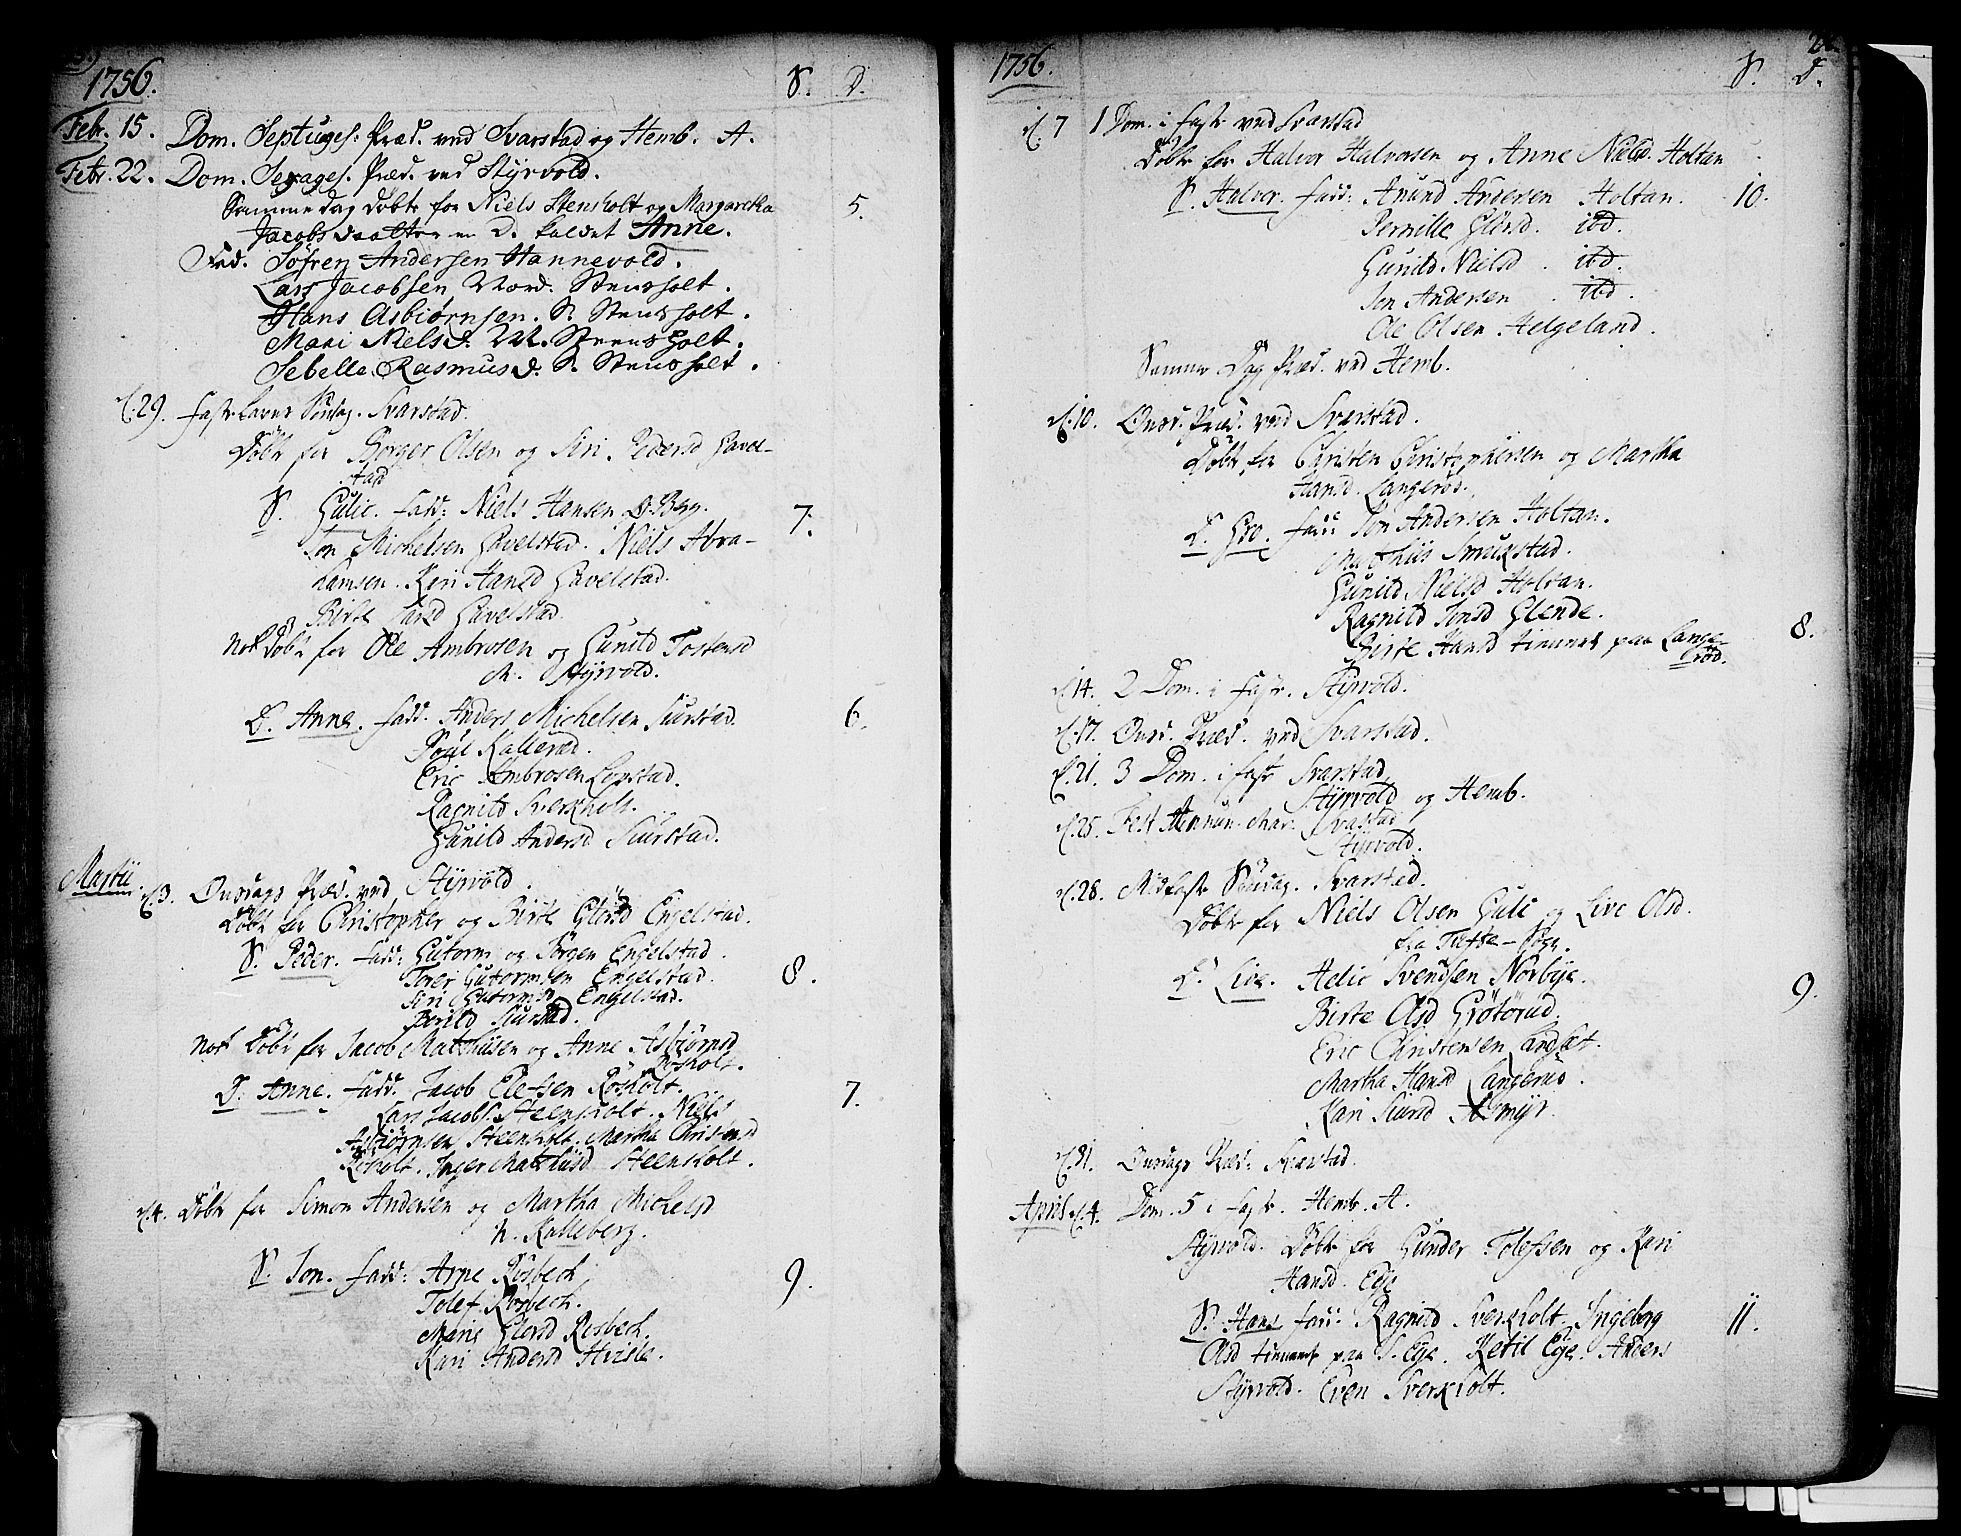 1756. S. D.
Febr. 15. Dom. Septuges: Præd. ved Svarstad og Hemb. A.
Febr. 22. Dom. Sexages. Præd. ved Styrvold.
Samme dag døbt for Niels Stensholt og Margaretha 5.
Jacobs daatter en D. kaldet Anne.
Fad. Søfren Andersen Hannevold.
Lars Jacobsen Nord. Stensholt.
Hans Asbiørnsen. S. Stensholt.
Mari Nielsd. M. Steensholt.
Sebelle Rasmusd. S. Stensholt.
d. 29. Fastelavns Søndag. Svarstad.
Døbt for Borger Olsen og Siri Pedersd Gavel-
stad
S. Gulic. Fadd: Niels Hansen O. Byy. 7.
Jon Michelsen Gavelstad. Niels Abra-
hamsen. Kari Hansd Gavelstad.
Birte Larsd Gavelstad.
Nok Døbt for Ole Ambrosen og Gunild Tostensd
M. Styrvold.
D. Anne. Fadd. Anders Michelsen Siurstad. 6.
Poul Kallerød.
Eric Ambrosen Lovstad.
Ragnild Sverkholt.
Gunild Andersd Siurstad.
Martii d. 3. Onsdags Præd. ved Styrvold.
Døbt for Christopher og Birte Glørsd Engelstad.
S. Peder. Fadd: Gutorm og Jørgen Engelstad. 8.
Torer Gutormsen Engelstad.
Siri Gutormsd Engelstad.
Borild Siurstad.
Nok Døbt for Jacob Mathiisen og Anne Asbiørnsd
Røsholt.
D. Anne. Fadd. Jacob Elefsen Røsholt. 7.
Lars Jacobs. Steensholt. Niels
Asbiørnsen Steensholt. Martha Christensd
Røsholt. Inger Mathiisd Steensholt.
d. 4. Døbt for Simon Andersen og Martha Michelsd
N. Kalleberg.
S. Jon. Fadd: Arne Risbech 9.
Tolef Risbech.
Maris Glørsd Risbech.
Kari Andersd Hizsle.
1756. S. D.
d. 7 1 Dom. i Faste ved Svarstad
Døbt for Halvor Halvorsen og Anne Nielsd. Holtan
S. Halvor. Fadd: Amund Andersen Holtan. 10.
Pernille Glørsd. ibd.
Gunild Nielsd. ibd.
Jon Andersen. ibd.
Ole Olsen Helgeland.
Samme Dag Præd. ved Hemb.
d. 10. Onsd. Præd. ved Svarstad.
Døbt for Christen Christophersen og Martha
Hansd. Langerød.
D. Gro. Fadd: Jon Andersen Holtan.
Mathiis Smukstad.
Gunild Nielsd Holtan.
Ragnild Jonsd Glende.
Birte Hansd tienende paa Lange- 8.
rød.
d. 14. 2 Dom. i Fast. Styrvold.
d. 17. Onsd. Præd. ved Svarstad.
d. 21. 3 Dom. i Fast Svarstad,
Styrvold og Hemb.
d. 25. Fest Annun. Mar: Svastad
Styrvold.
d. 28. Midfaste Søndag. Svarstad.
Døbt for Niels Olsen Gulli og Live Olsd.
fra Tutte-Søge.
D. Live. Helie Svendsen Norbye. 9.
Birte Olsd Grøtørud.
Eric Christensen Landset.
Martha Hansd Langerud.
Kari Siursd Asmyr.
d. 31. Onsdags Præd: Svarstad.
April d. 4. Dom. 5 i Fast. Hemb. A.
Styrvold. Døbt for Gunder Tolefsen og Kari
Hansd. Ege
S. Hans Fadd: Ragnild Sverkholt. Ingeborg 11.
Olsd tienende paa S. Ege. Ketil Ege. Anders
Styrvold. Even Sverkholt.